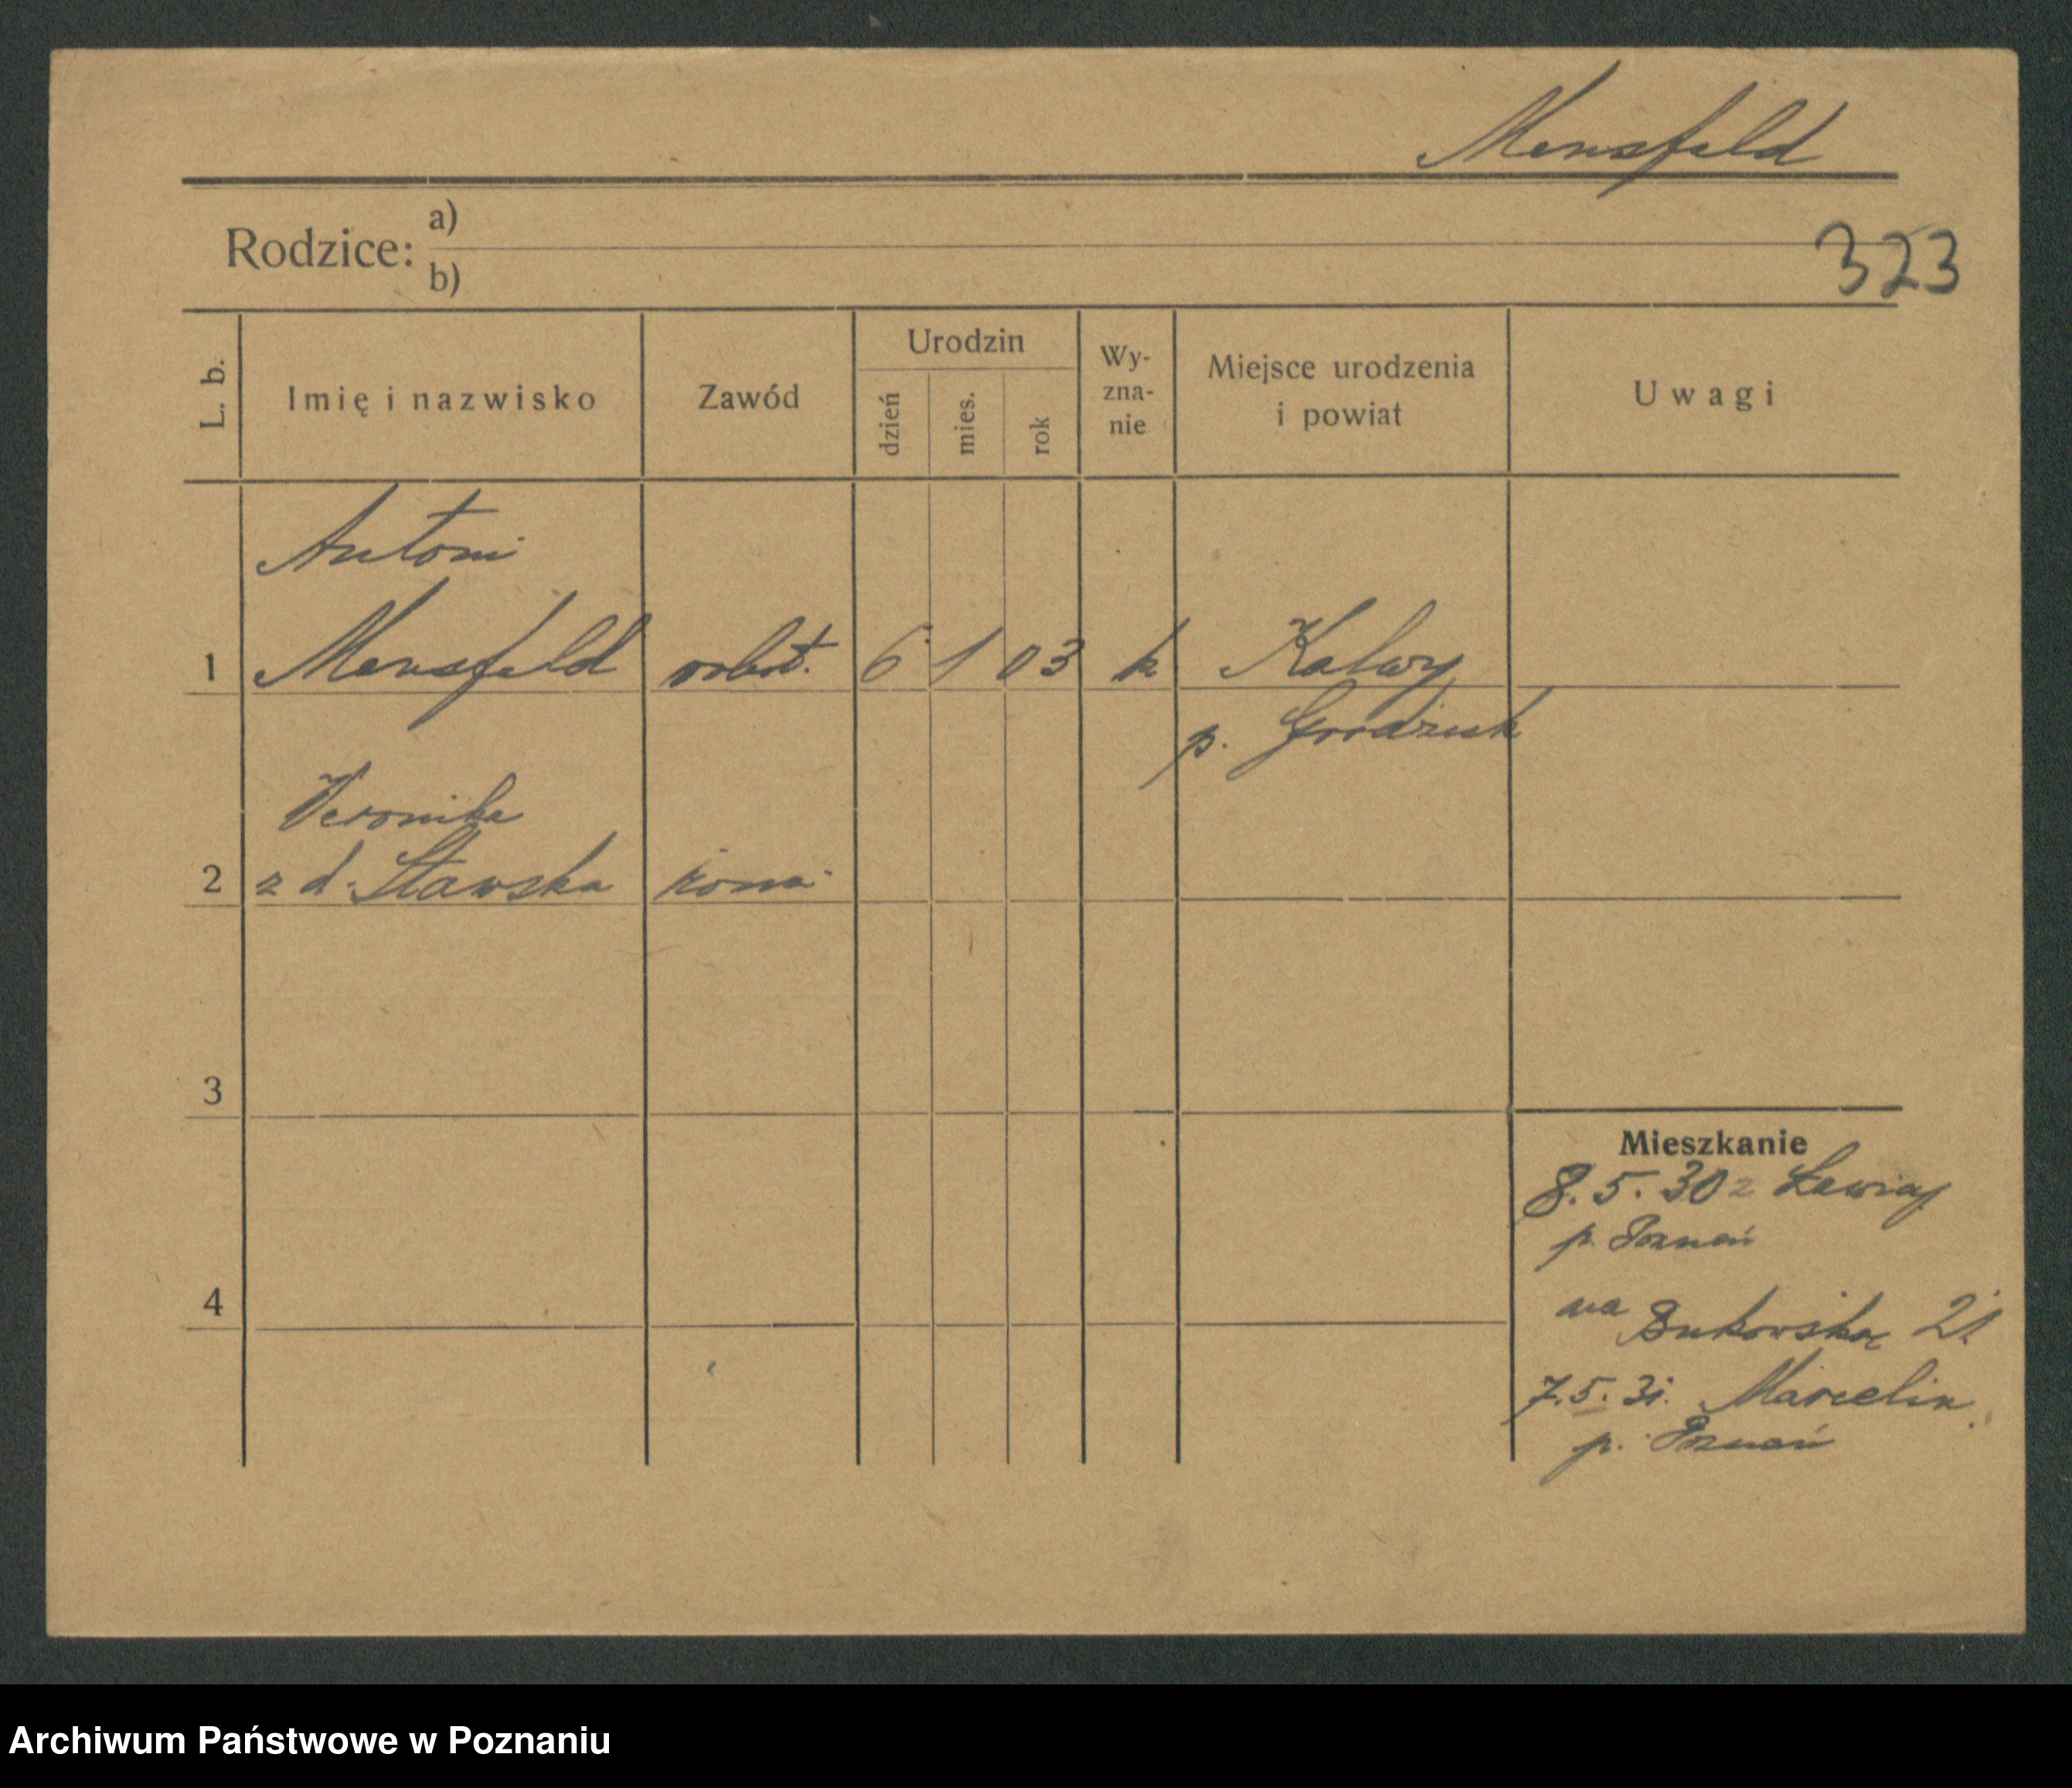 Mensfeld
Rodzice: a)
b)
323
L. b.
Imię i nazwisko
Zawód
Urodzin
dzień
mies.
rok
Wy-
zna-
nie
Miejsce urodzenia
i powiat
Uwagi
Antoni
1 Mensfeld robot. 6 1 03 k. Kalwy
p. Grodzisk
Veronika
2 z d. Stawska żona
3
Mieszkanie
8.5.30 z Ławicy
p. Poznań
4
na Bukowską 21
7.5.31. Marcelin
p. Poznań
Archiwum Państwowe w Poznaniu